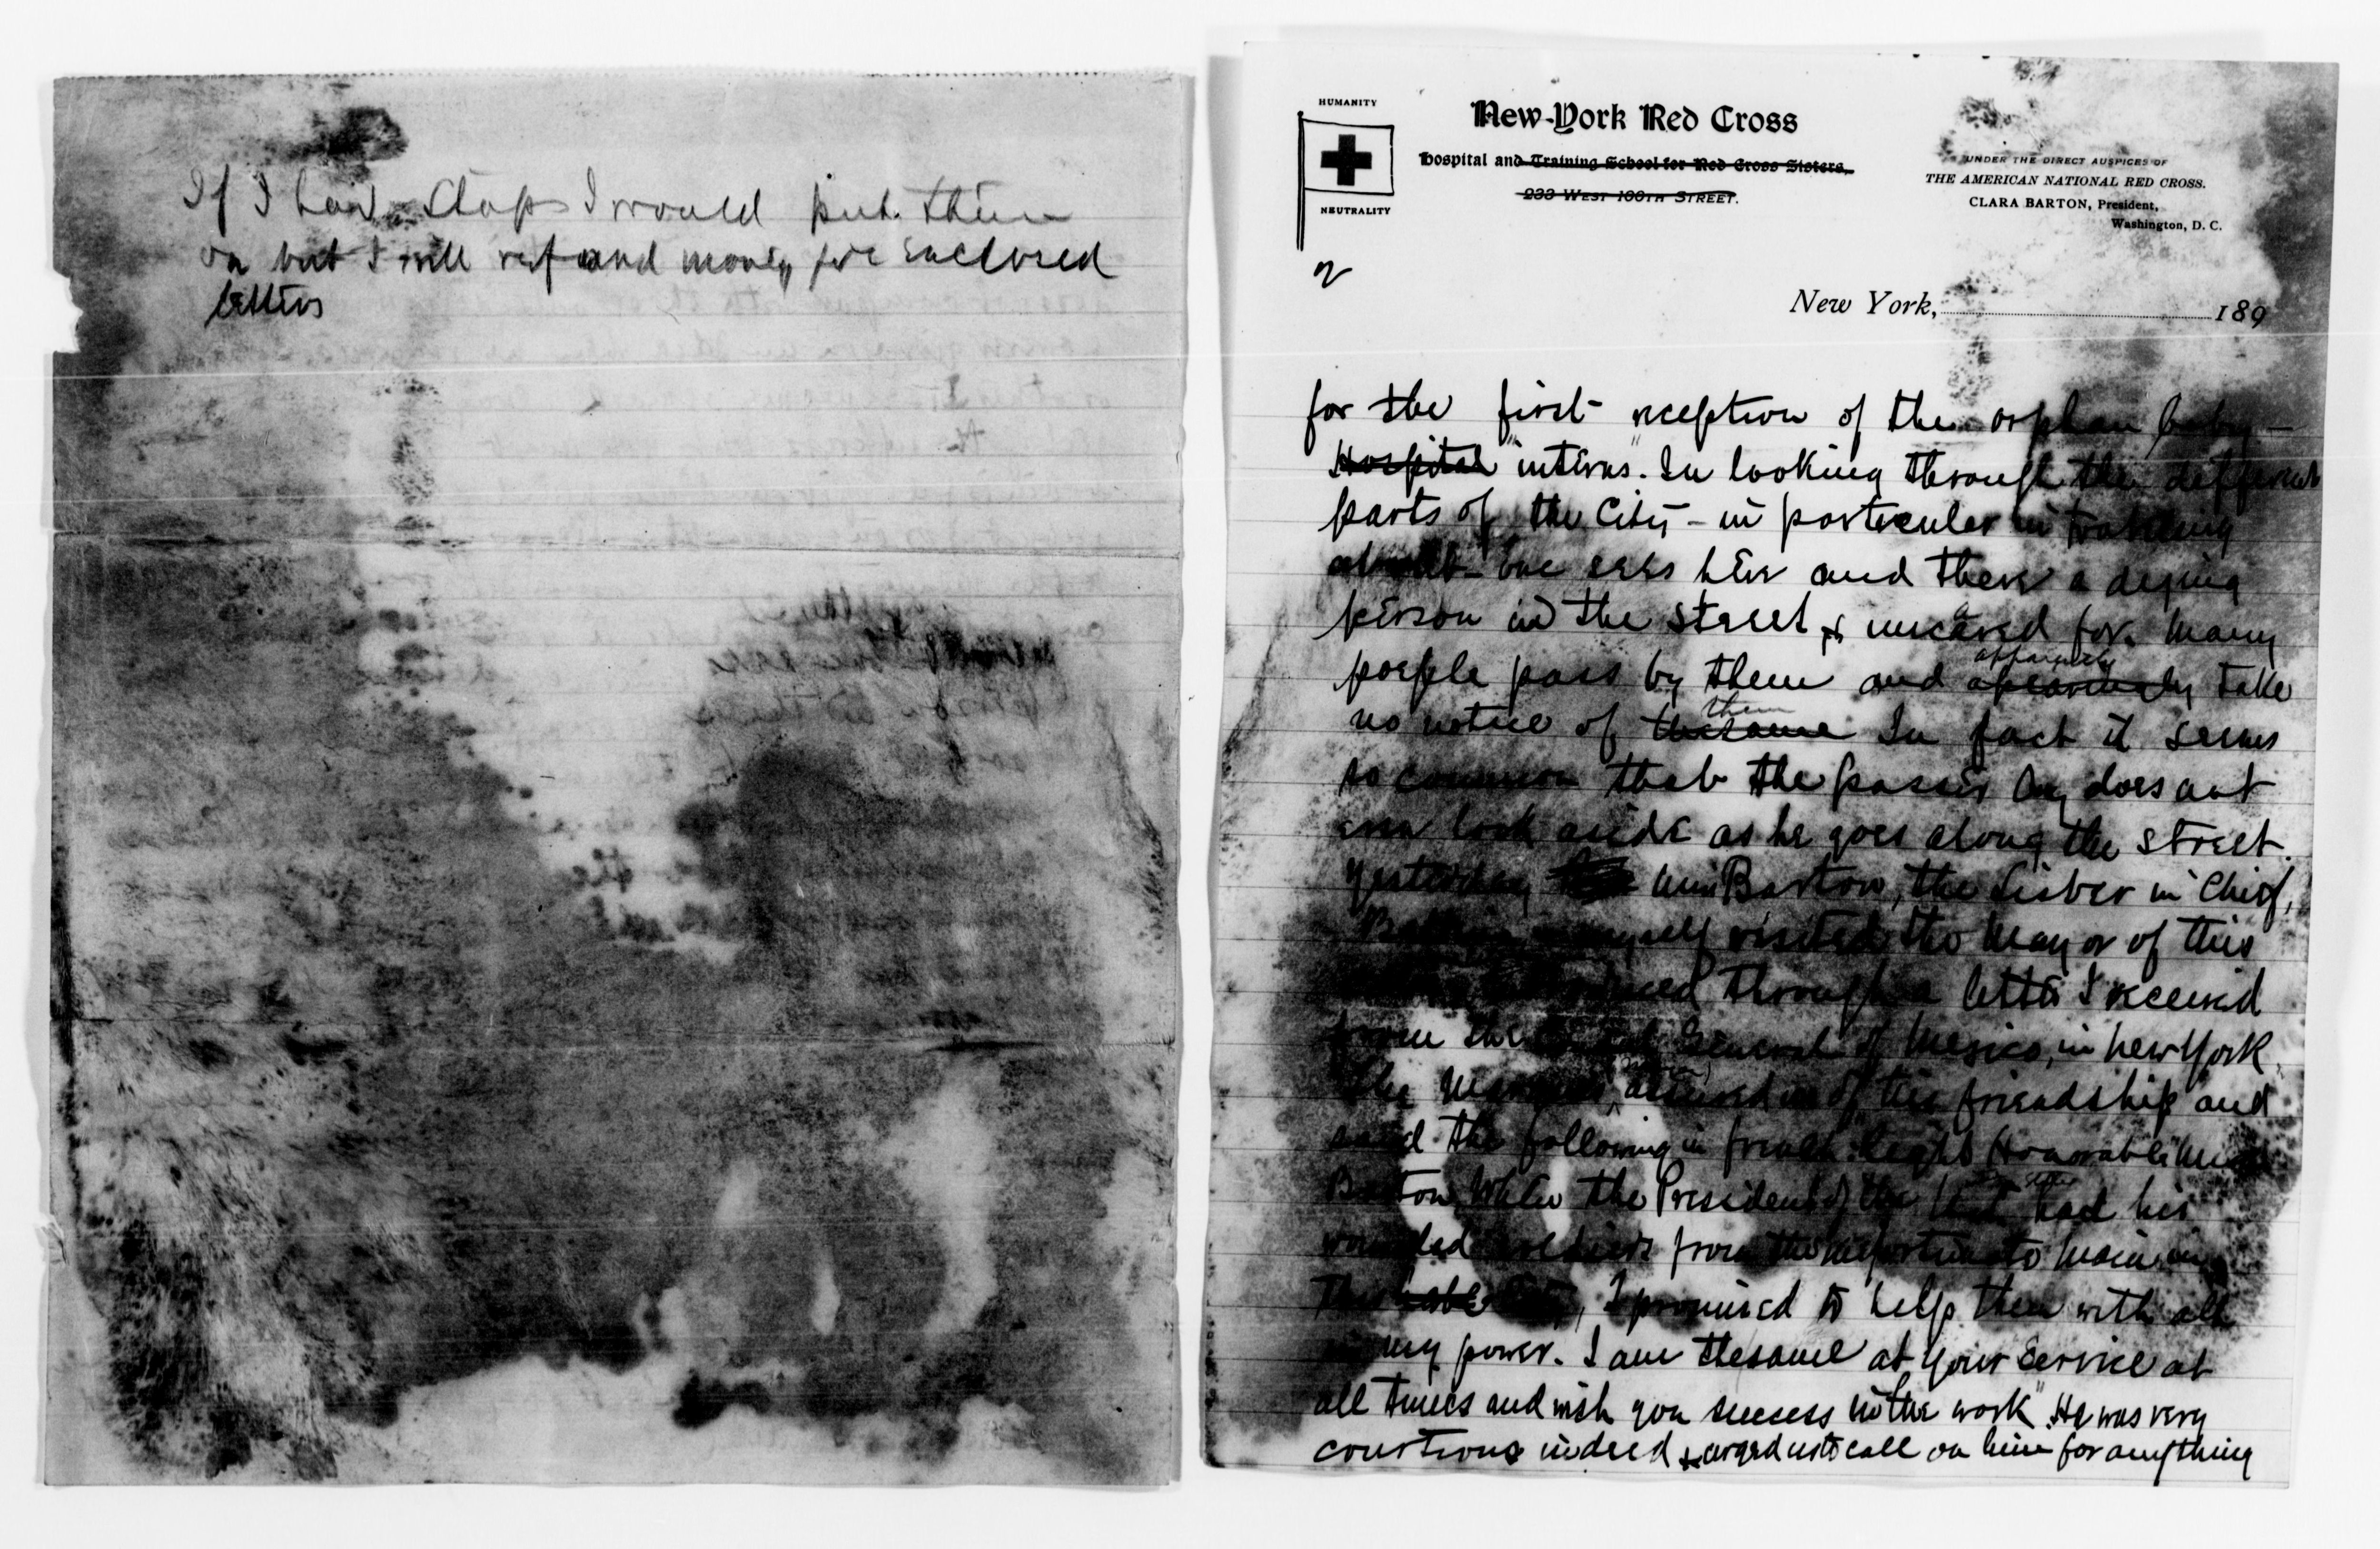 If I had Stops I would put them
on but I will refund money for enclosed
letters
HUMANITY
NEUTRALITY
New-York Red Cross
Hospital and Training School for Red Cross Sisters,
233 West 100th Street.
UNDER THE DIRECT AUSPICES OF
THE AMERICAN NATIONAL RED CROSS.
CLARA BARTON, President,
Washington, D. C.
2
New York, 189
for the first reception of the orphan baby –
Hospital "interns". In looking through the different
parts of the City – in particular in
about – one sees here and there a dying
person in the street, & uncared for. Many
people pass by them and apearingly apparently take
no notice of thesame them In fact it seems
so common that the passer by does not
even look aside as he goes along the street.
Yesterday Miss Barton, the Sister in Chief,
myself visited the Mayor of this
through a letter I received
from the General of Mexico, in New York.
The assured us of his friendship and
said the following in french. Right Honorable Miss
Barton, When the President of the had his
wounded soldiers from the unfortunate Maine in
This, I promised to help them with all
my power. I am thesame at your Service at
all times and wish you success in the work". He was very
courtious indeed & urged us to call on him for anything